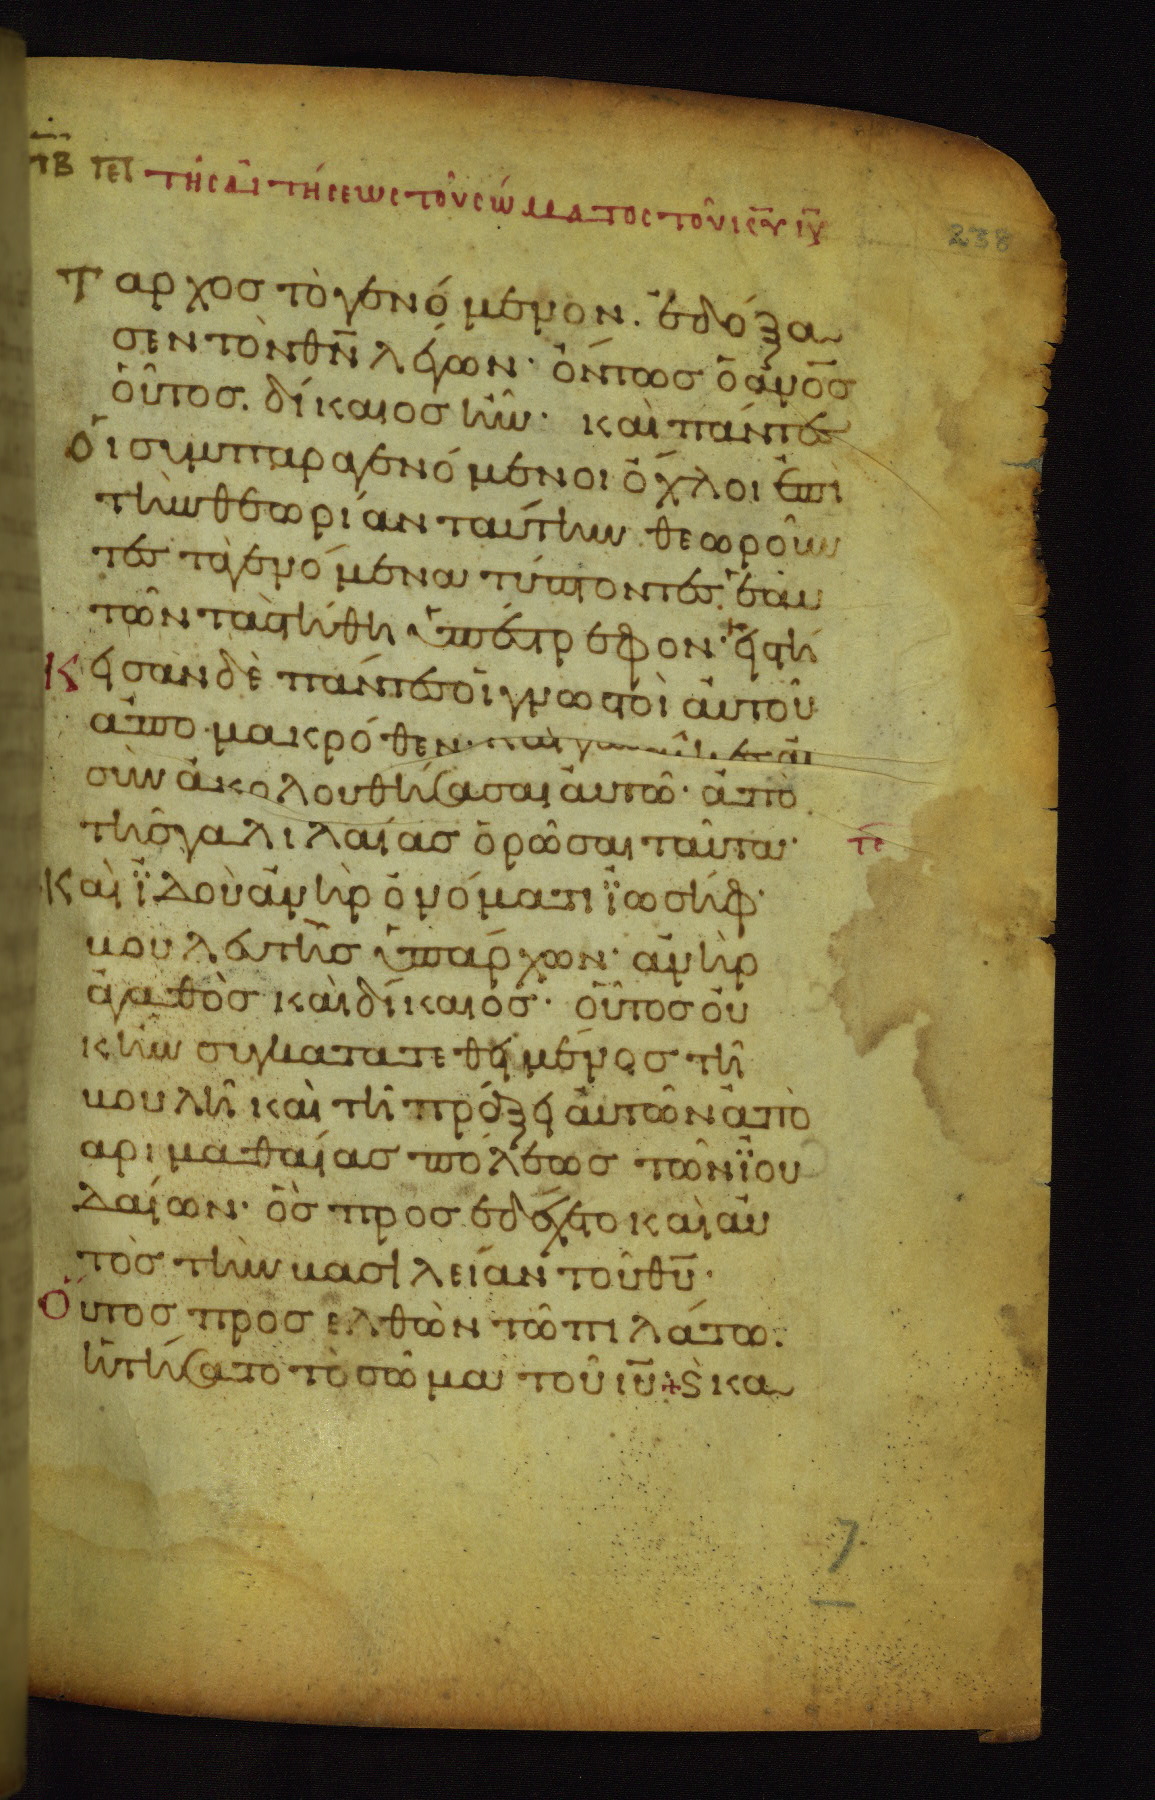 πβ πγ τῆς αἰτήσεως τοῦ σώματος τοῦ κ̅υ̅ ι̅υ̅
238
ταρχος τὸ γενόμενον. ἐδόξα
σεν τὸν θ̅ν̅ λέγων· ὄντως ὁ ἄν̅ο̅ς
οὗτος. δίκαιος ἦν· καὶ πάντες
οἱ συμπαραγενόμενοι ὄχλοι ἐπὶ
τὴν θεωρίαν ταύτην θεωροῦν
τες τὰ γενόμενα τύπτοντες ἑαυ
τῶν τὰ στήθη ὑπέστρεφον· εἱστή
κεισαν δὲ πάντες οἱ γνωστοὶ αὐτοῦ
ἀπὸ μακρόθεν· καὶ γυναῖκες αἱ
συνἀκολουθήσασαι αὐτῶ· ἀπὸ
τῆς γαλιλαίας ὁρῶσαι ταῦτα·
τέ
Καὶ ἰδοὺ ἀνὴρ ὀνόματι ϊωσήφ·
βουλευτὴς ὑπάρχων· ἀνὴρ
ἀγαθὸς καὶ δίκαιος· οὗτος οὐ
κ ἦν συγκατατεθειμένος τῆ
βουλῆ καὶ τῆ πράξει αὐτῶν ἀπὸ
αριμαθαίας πόλεως τῶν ϊου
δαίων· ὃς προσεδέχετο καὶ αὐ
τὸς τὴν βασιλείαν τοῦ θ̅υ̅·
Οὗτος προσελθὼν τῶ πιλάτω.
ἠτήσατο τὸ σῶμα τοῦ ι̅υ̅ + ϛ κα
7